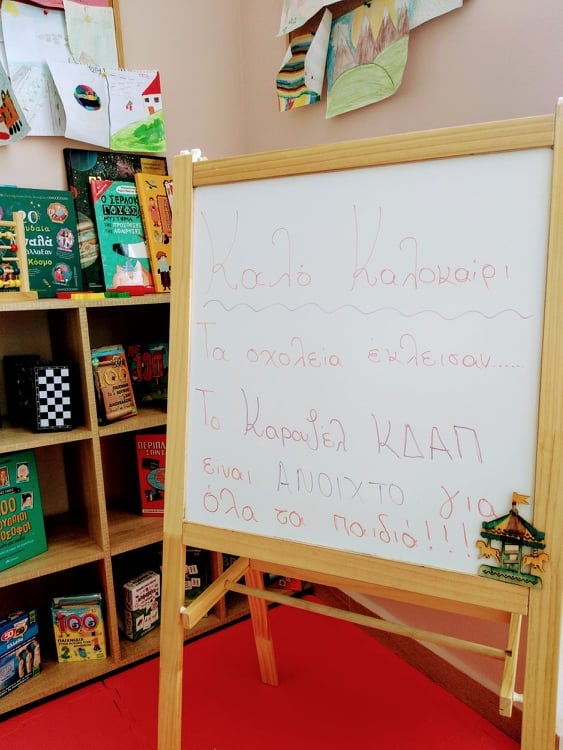 Καλό Καλοκαίρι
Τα σχολεία έκλεισαν......
Το Καραβέλ ΚΔΑΠ
είναι ΑΝΟΙΧΤΟ για
όλα τα παιδιά!!!!
Ο ΣΕΡΛΟΚ
ΜΥΣΤΗΡΙΑ
100
100